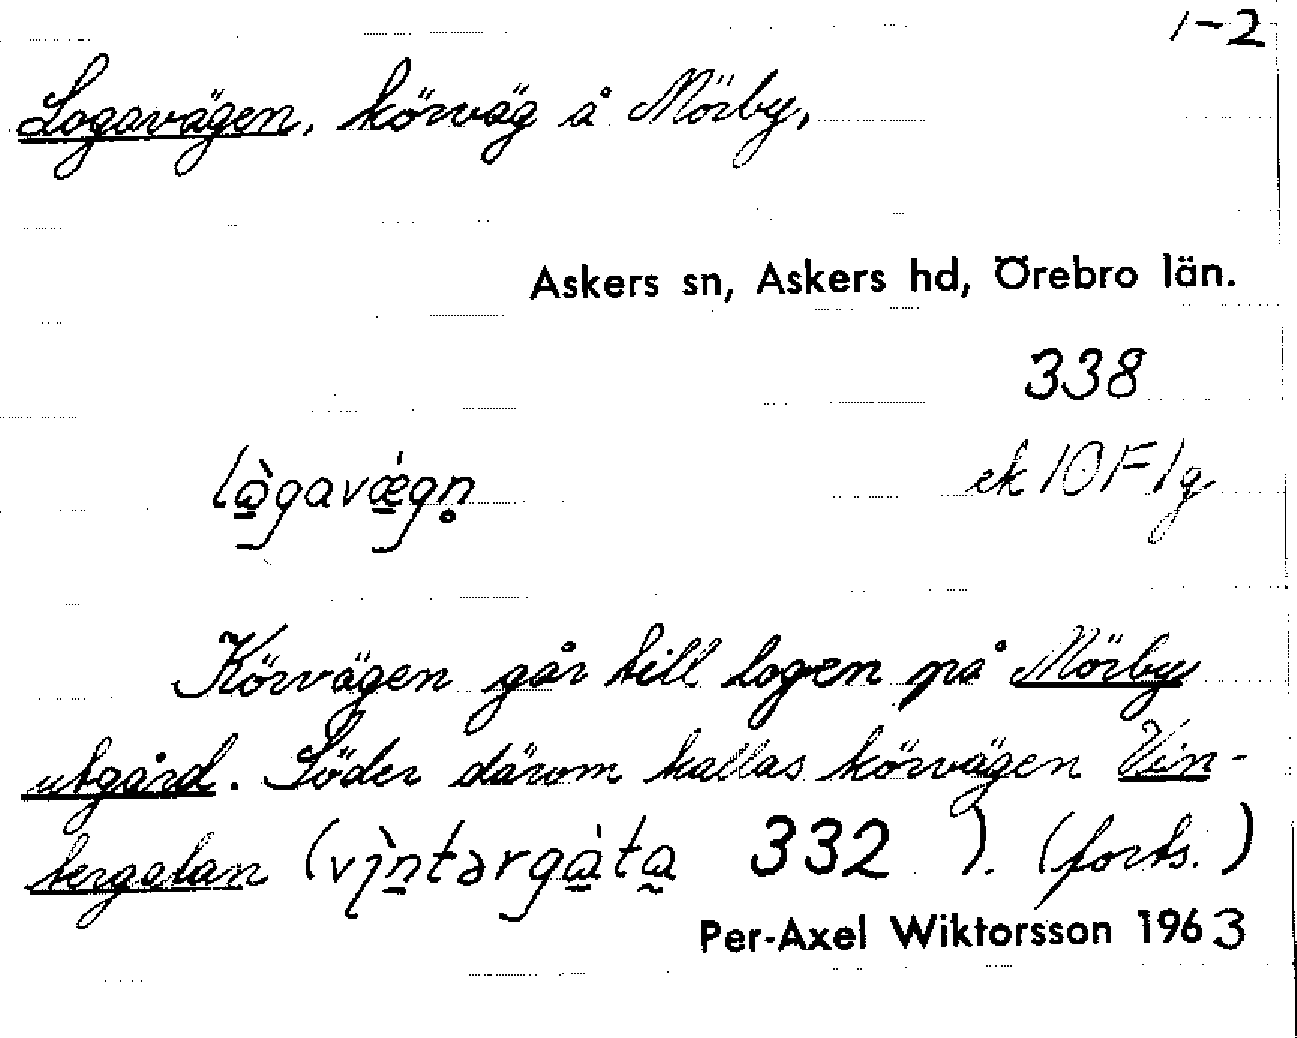 1-2
Logavägen, körväg å Mörby,
Askers sn, Askers hd, Örebro län.
338
ek 10F1g
Körvägen går till logen på Mörby
utgård. Söder därom kallas körvägen Vin-
tergatan ( 332 ). (forts.)
Per-Axel Wiktorsson 1963